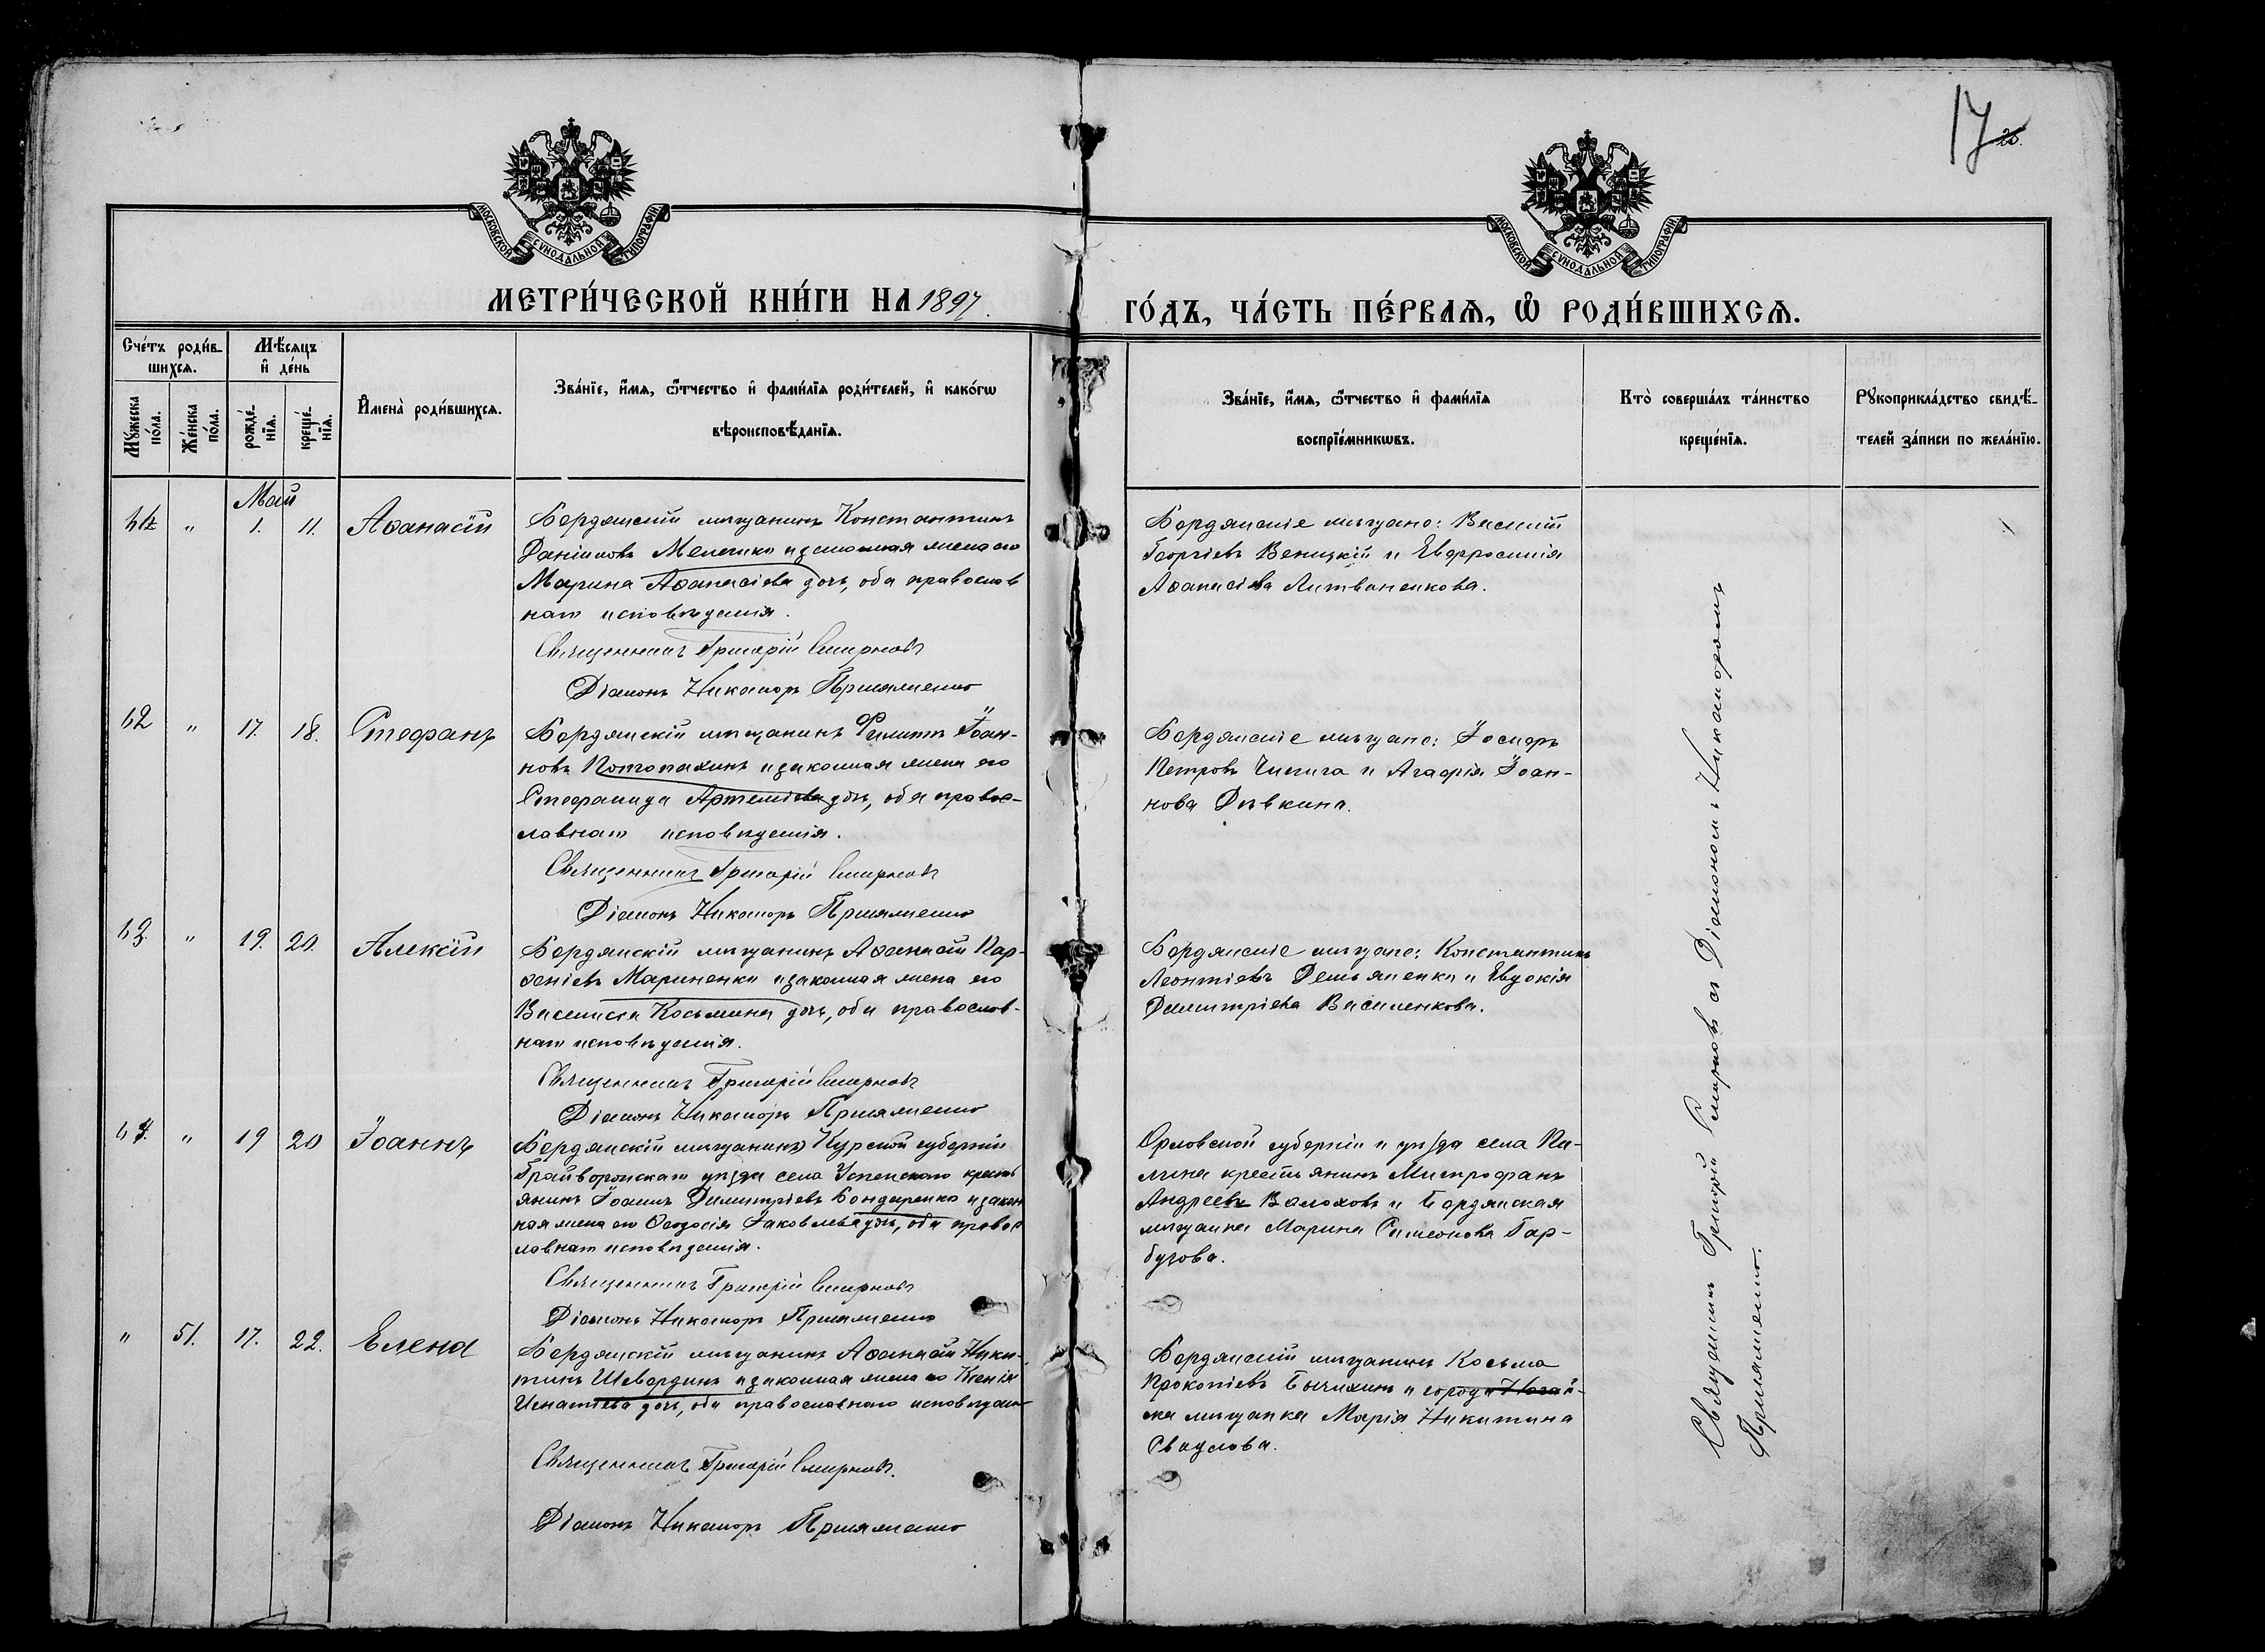 17 20.
МОСКОВСКОЙ СѴНОДАЛЬНОЙ ТИПОГРАФІИ
МОСКОВСКОЙ СѴНОДАЛЬНОЙ ТИПОГРАФІИ
МЕТРИ́ЧЕСКОЙ КНИ́ГИ НА 1897
ГО́ДЪ, ЧА́СТЬ ПЕ́РВАѦ, Ѽ РОДИ́ВШИХСѦ.
Сче́тъ роди́в-
шихсѧ.
Мѣ́сѧцъ
и҆ де́нь
Мꙋ́жеска
по́ла.
Же́нска
по́ла.
рожде́-
нїѧ.
креще́-
нїѧ.
И҆мена̀ роди́вшихсѧ.
Зва́нїе, и҆́мѧ, ѻ҆́тчество и҆ фами́лїѧ роди́телей, и҆ како́гѡ
вѣроисповѣ́данїѧ.
Зва́нїе, и҆́мѧ, ѻ҆́тчество и҆ фами́лїѧ
воспрїе́мникѡвъ.
Кто̀ соверша́лъ та́инство
креще́нїѧ.
Рꙋкоприкла́дство свидѣ́-
телей за́писи по жела́нїю.
Май
" 1. 11. Аѳанасій
Бердянскій мѣщанинъ Константинъ
Даніиловъ и законная жена его
Марина Аѳанасіева дочь, оба православ
наго исповѣданія.
Священникъ Григорій Смирновъ
Діаконъ Никаноръ
Бердянскіе мѣщане: Василій
Георгіевъ Веницкій и Евфросинія
Аѳанасіева Литвиненкова.
62 " 17. 18. Стефанъ
Бердянскій мѣщанинъ Филиппъ Іоан-
новъ Потопахинъ и законная жена его
Стефанида Артеміева дочь, оба правос-
лавнаго исповѣданія.
Священникъ Григорій Смирновъ
Діаконъ Никаноръ
Бердянскіе мѣщане: Іосифъ
Петровъ Чипига и Агафія Іоан-
нова Дѣвкина.
63. " 19. 20. Алексій
Бердянскій мѣщанинъ Аѳанасій Пар-
ѳеніевъ Мариненко и законная жена его
Василисса Косьмина дочь, оба православ-
наго исповѣданія.
Священникъ Григорій Смирновъ
Діаконъ Никаноръ
Бердянскіе мѣщане: Константинъ
Леонтіевъ Демьяненко и Евдокія
Димитріева Василенкова.
64. " 19 20 Іоаннъ
Бердянскій мѣщанинъ Курской губерніи
Грайворонскаго уѣзда села Успенского кресть
янинъ Іоаннъ Димитріевъ Бондаренко и закон
ная жена его Ѳеодосія Іаковлева дочь, оба правос
лавнаго исповѣданія.
Священникъ Григорій Смирновъ
Діаконъ Никаноръ
Орловской губерніи и уѣзда села Па-
крестьянинъ Митрофанъ
Андреевъ Волоховъ и Бердянская
мѣщанка Марина Симеонова Гар-
бузова.
" 51. 17. 22. Елена
Бердянскій мѣщанинъ Аѳанасій Ники-
тинъ Шевердинъ и законная жена его Ксенія
Игнатіева дочь, оба православного исповѣдан
Священникъ Григорій Смирновъ.
Діаконъ Никаноръ
Бердянскій мѣщанинъ Косьма
Прокопіевъ Бычихинъ и города Ногай-
ска мѣщанка Марія Никитина
Священникъ Григорій Смирновъ съ Діакономъ Никаноромъ